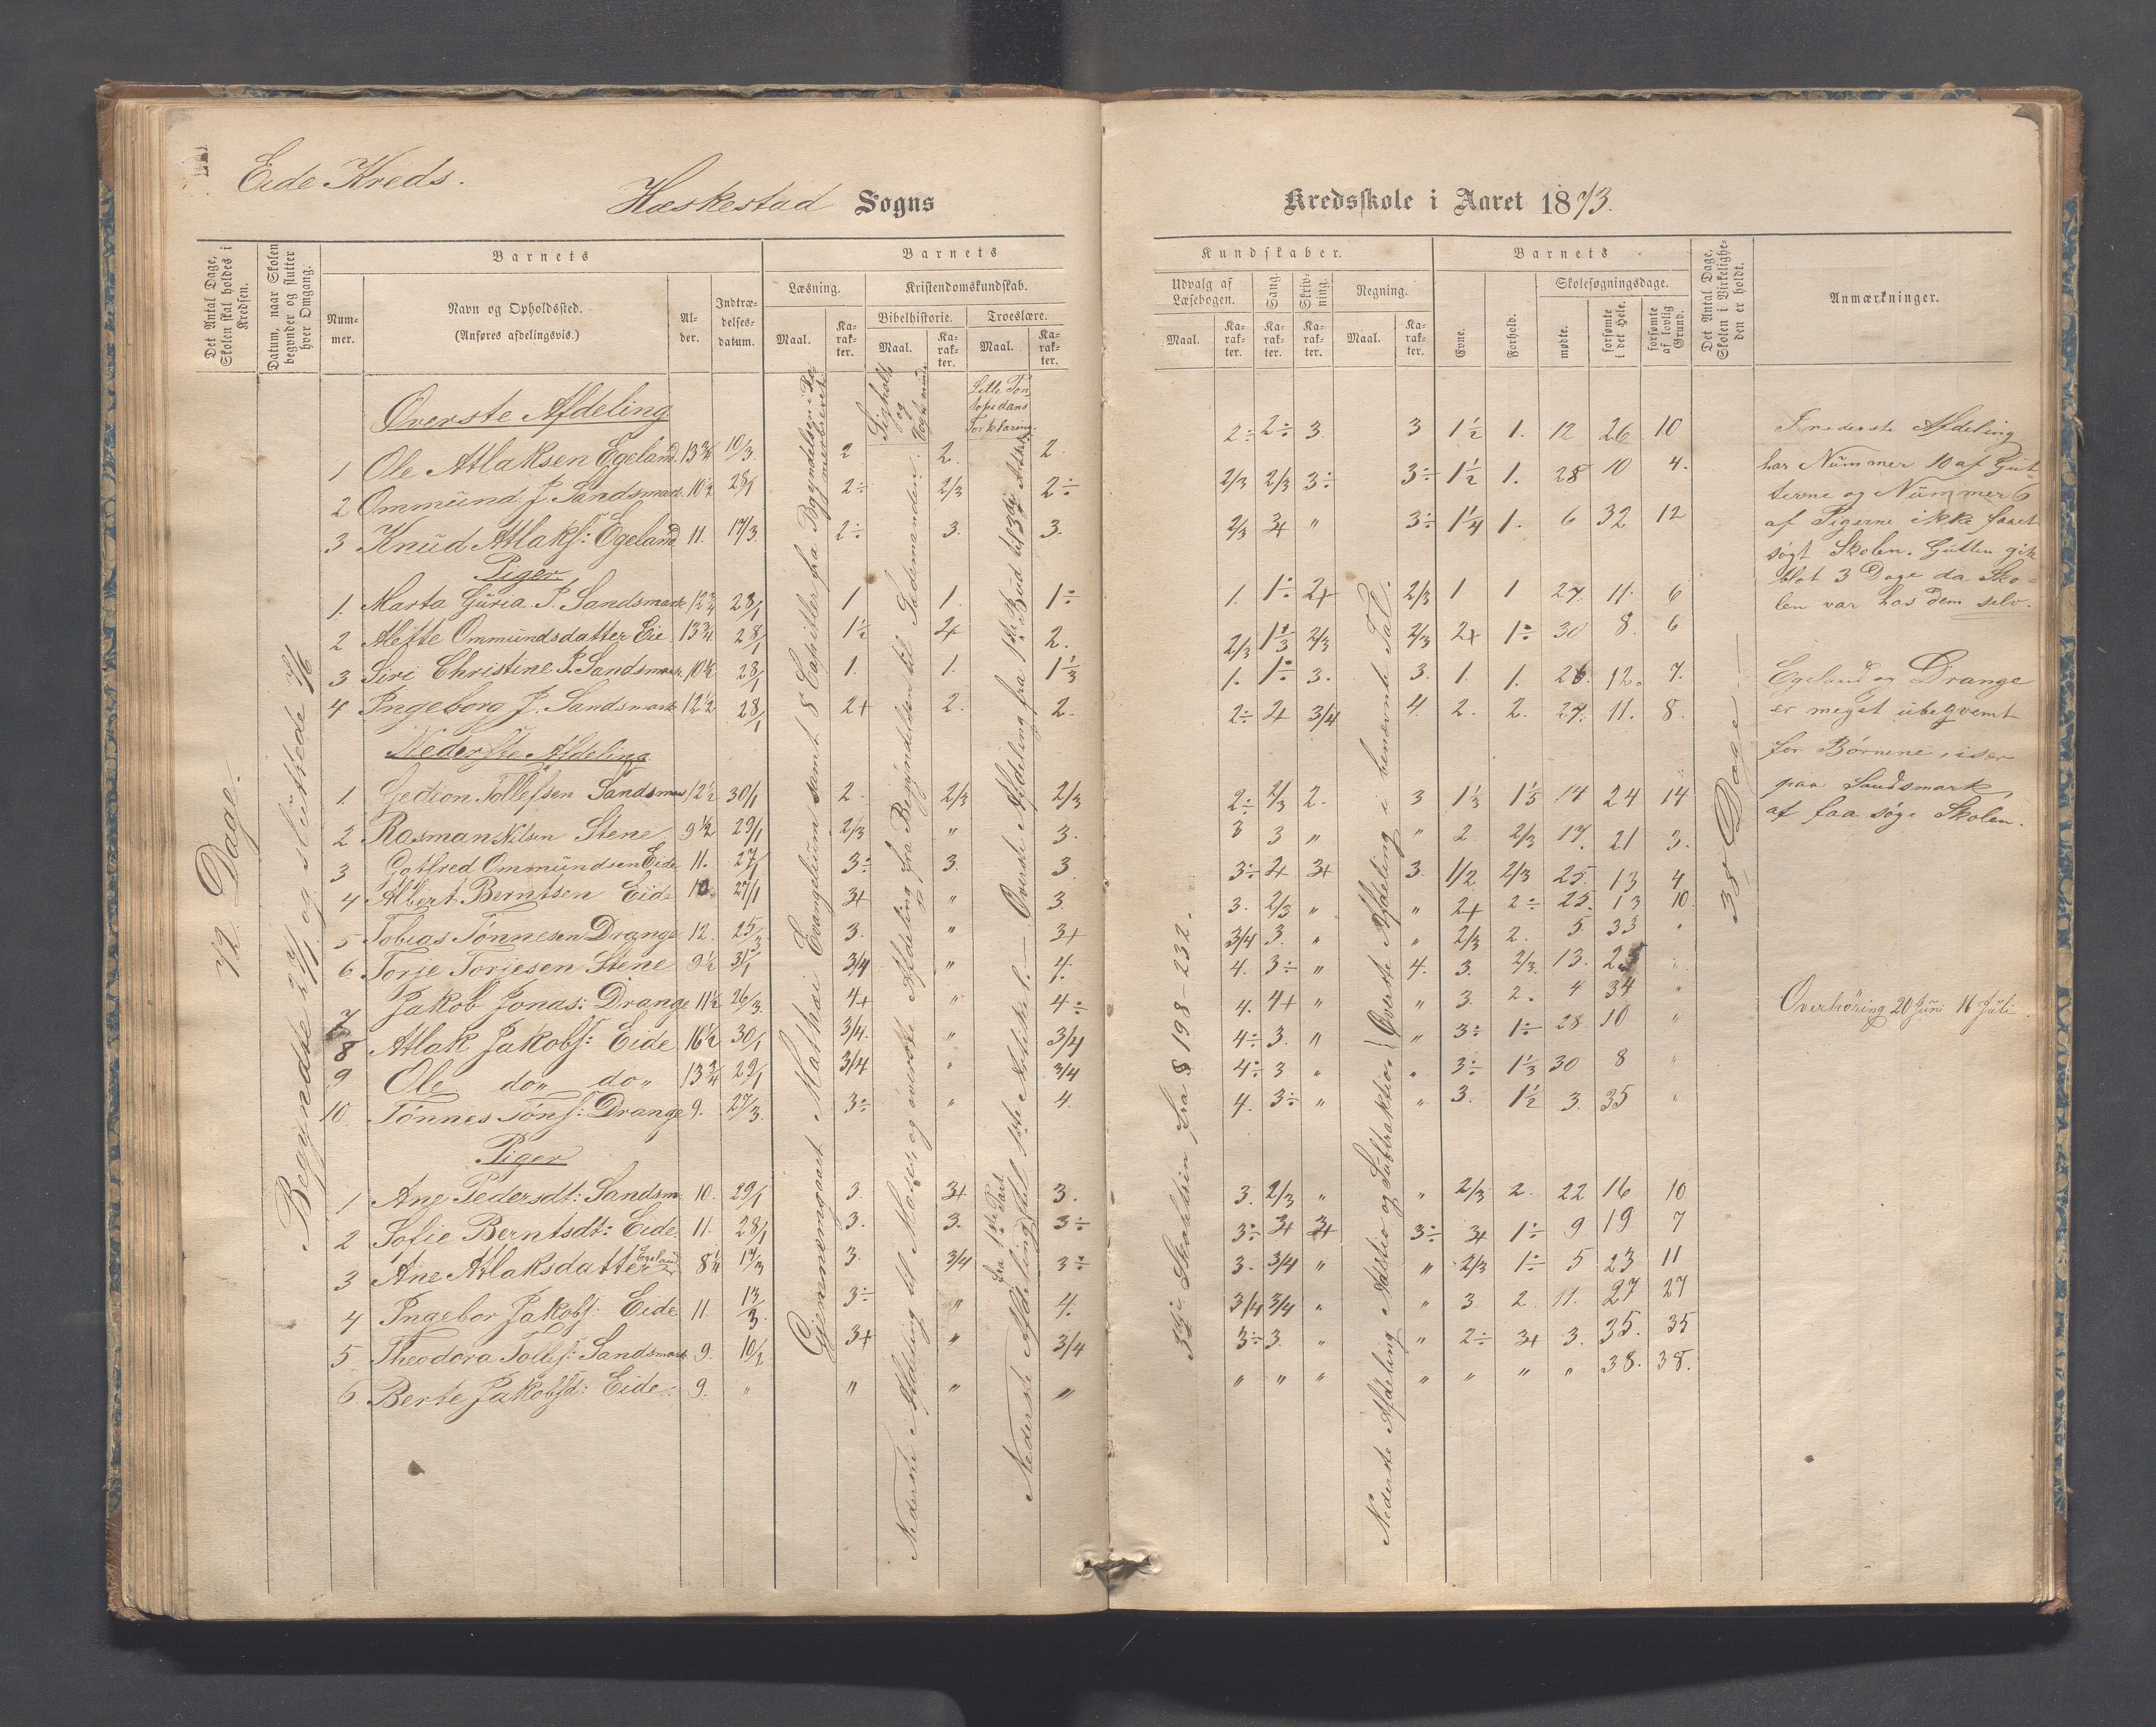 Eide Kreds.
Heskestad Sogns
Kredsskole i Aaret 1873.
Det Antal Dage, Skolen skal holdes i Kredsen.
Datum, naar Skolen begynder og slutter hver Omgang.
Barnets
Num-mer.
Navn og Opholdssted.
(Anføres afdelingsvis.)
Al-der.
Indtræ-delses-datum.
Barnets
Læsning.
Maal.
Ka-rak-ter.
Kristendomskundskab.
Bibelhistorie.
Maal.
Ka-rak-ter.
Troeslære.
Maal.
Ka-rak-ter.
Kundskaber.
Udvalg af Læsebogen.
Maal.
Ka-rak-ter.
Sang.
Ka-rak-ter.
Skriv-ning.
Ka-rak-ter.
Regning.
Maal.
Ka-rak-ter.
Barnets
Evne.
Forhold.
Skolesøgningsdage.
mødte.
forsømte i det Hele.
forsømte af lovlig Grund.
Det Antal Dage, Skolen i Virkelighe-den er holdt.
Anmærkninger.
72 Dage.
Begyndte 27/1 og sluttede 5/6
Øverste Afdeling
1 Ole Atlaksen Egeland 13 3/4 10/3. 2 2. 2. 2÷ 2÷ 3. 3 1 1/2 1. 12 26 10
2 Ommund J. Sandsmark 10 1/2 28/1 2÷ 2/3 2÷ 2/3 2/3 3÷ 3÷ 1 1/2 1. 28 10 4.
3 Knud Atlaks: Egeland 11. 17/3. 2÷ 3. 3. 2/3 3+ " 3÷ 1 1/4 1. 6 32 12
Piger
1. Marta Guria P. Sandsmark 12 3/4 28/1 1 1. 1÷ 1. 1÷ 2+ 2/3 1 1 27. 11. 6
2 Alette Ommundsdatter Eie 13 3/4 28/1 1 1/2 2+ 2. 2/3 1 1/3 2/3 2/3 2+ 1÷ 30 8. 6
3 Siri Christine P. Sandsmark 10 1/2 28/1 1. 1. 1 1/3 1. 1÷ 3. 3. 1. 1. 26. 12. 7.
4 Ingeborg J. Sandsmark 12 1/2 28/1 2+ 2. 2. 2÷ 2+ 3/4 4. 2. 2. 27. 11. 8.
Nederste Afdeling
1. Gedion Tollefsen Sandsmar 12 1/2 30/1 2. 2/3 2/3 2÷ 2/3 2. 3 1 1/3 1 1/3 14 24 14
2 Rasman Nilsen Stene 9 1/2 29/1 2/3 " 3. 3 3 " " 2. 2/3 17. 21 3.
3 Gotfred Ommundsen Eide 11. 27/1 3÷ 3. 3. 3÷ 2+ 3+ 3. 1/2 2/3 25. 13 4
4 Albert Berntsen Eide 10. 27/1 3+ " 3. 3. 2/3 " " 2+ 2÷ 25. 13 10.
5 Tobias Tønnesen Drange 12. 25/3 3. " 3+ 3/4 3. " " 2/3 2. 5. 33 "
6 Torje Torjesen Stene 9 1/2 31/1 3/4 " 4. 4. 3÷ " 4. 3. 2/3. 13. 25 "
7 Jakob Jonas: Drange 11 1/2 26/3. 4+ " 4÷ 4. 4+ " " 3. 2. 4 34 "
8 Atlak Jakobs: Eide 16 1/2 30/1 3/4. " 3/4 4÷ 3. " " 3÷ 1÷ 28 10 "
9 Ole do" do" 13 3/4 29/1 3/4 " 3/4 4÷ 3 " " 3÷ 1 1/3 30 8 "
10 Tønnes Tøns: Drange 9. 27/3. 3÷ " 4. 4. 3÷ " " 3. 1 1/2 3. 35 "
Piger
1 Ane Pedersdt: Sandsm. 10. 29/1 3. 3+ 3. 3. 2/3 " " 2/3 2. 22 16 10
2 Sofie Berntsdt: Eide. 11. 28/1 3. 3. 3÷ 3÷ 3+ 3+ 3÷ 3+ 1÷ 9 19 7
3 Ane Atlaksdatter Egeland 8 1/4 17/3 3. 3/4 3÷ 3. 3/4 " " 2/3 1÷ 5 23 11
4 Ingebor Jakobs: Eide 11. 13/3. 3÷ " 4. 3/4 3/4 " " 3. 2. 11. 27 27
5 Theodora Tollefs: Sandsmark 9. 10/2 3+ " 3/4 3÷ 3. " " 2÷ 3+ 3. 35. 35
6. Berte Jakobsd: Eide. 9. " " " " " " " " " " " 38. 38.
Gjennemgaaet Mathæi Evangelium samt 8 Capitler fra Begyndelsen
Nederste Afdeling til Moses, og øverste Afdeling fra Begyndelsen til
Nederste Afdeling til 1ste Artikkel. — Øverste Afdeling fra 1ste Bud til 3die Artik
fra 1ste Part
3die Skoletrin fra § 198-232.
Nederste Afdeling Addition og Subtraktion / Øverste Afdeling i benævnte Tal.
38 Dage
I nederste Afdeling
har Nummer 10 af Gut-
terne og Nummer 6
af Pigerne ikke faaet
søgt Skolen. Gutten gik
blot 3 Dage da Sko-
len var hos dem selv.
Egeland og Drange
er meget ubekvemt
for Børnene, især
paa Sandsmark,
at faa søge Skolen.
Overhøring 20 Juni 16 Juli